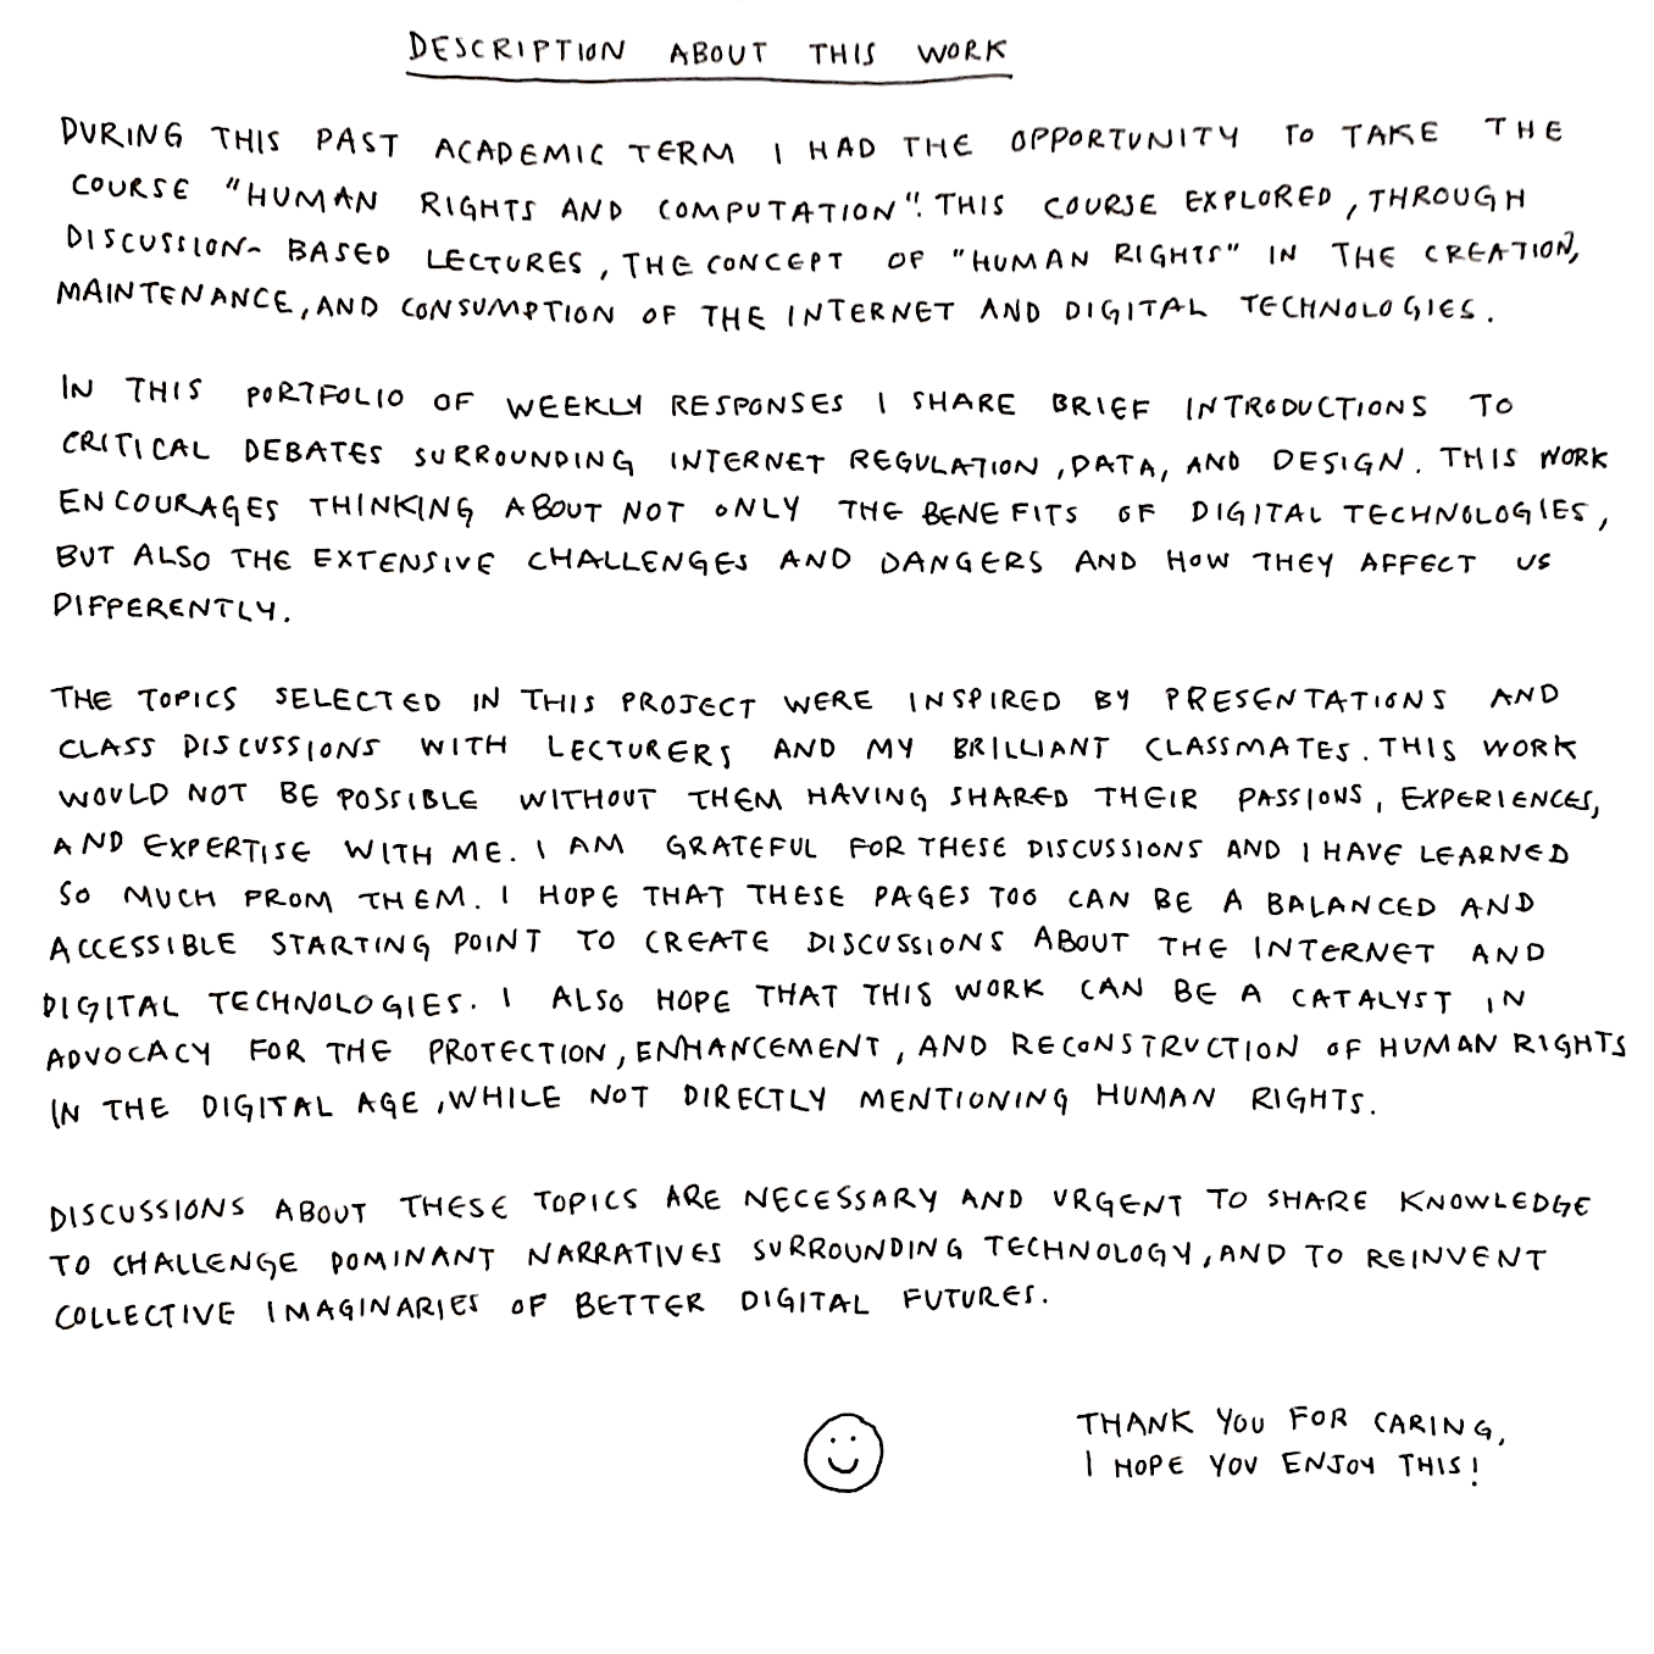 DESCRIPTION ABOUT THIS WORK
DURING THIS PAST ACADEMIC TERM I HAD THE OPPORTUNITY TO TAKE THE
COURSE "HUMAN RIGHTS AND COMPUTATION". THIS COURSE EXPLORED, THROUGH
DISCUSSION- BASED LECTURES, THE CONCEPT OF "HUMAN RIGHTS" IN THE CREATION,
MAINTENANCE, AND CONSUMPTION OF THE INTERNET AND DIGITAL TECHNOLOGIES.
IN THIS PORTFOLIO OF WEEKLY RESPONSES I SHARE BRIEF INTRODUCTIONS TO
CRITICAL DEBATES SURROUNDING INTERNET REGULATION, DATA, AND DESIGN. THIS WORK
ENCOURAGES THINKING ABOUT NOT ONLY THE BENEFITS OF DIGITAL TECHNOLOGIES,
BUT ALSO THE EXTENSIVE CHALLENGES AND DANGERS AND HOW THEY AFFECT US
DIFFERENTLY.
THE TOPICS SELECTED IN THIS PROJECT WERE INSPIRED BY PRESENTATIONS AND
CLASS DISCUSSIONS WITH LECTURERS AND MY BRILLIANT CLASSMATES. THIS WORK
WOULD NOT BE POSSIBLE WITHOUT THEM HAVING SHARED THEIR PASSIONS, EXPERIENCES,
AND EXPERTISE WITH ME. I AM GRATEFUL FOR THESE DISCUSSIONS AND I HAVE LEARNED
SO MUCH FROM THEM. I HOPE THAT THESE PAGES TOO CAN BE A BALANCED AND
ACCESSIBLE STARTING POINT TO CREATE DISCUSSIONS ABOUT THE INTERNET AND
DIGITAL TECHNOLOGIES. I ALSO HOPE THAT THIS WORK CAN BE A CATALYST IN
ADVOCACY FOR THE PROTECTION, ENHANCEMENT, AND RECONSTRUCTION OF HUMAN RIGHTS
IN THE DIGITAL AGE, WHILE NOT DIRECTLY MENTIONING HUMAN RIGHTS.
DISCUSSIONS ABOUT THESE TOPICS ARE NECESSARY AND URGENT TO SHARE KNOWLEDGE
TO CHALLENGE DOMINANT NARRATIVES SURROUNDING TECHNOLOGY, AND TO REINVENT
COLLECTIVE IMAGINARIES OF BETTER DIGITAL FUTURES.
THANK YOU FOR CARING,
I HOPE YOU ENJOY THIS!